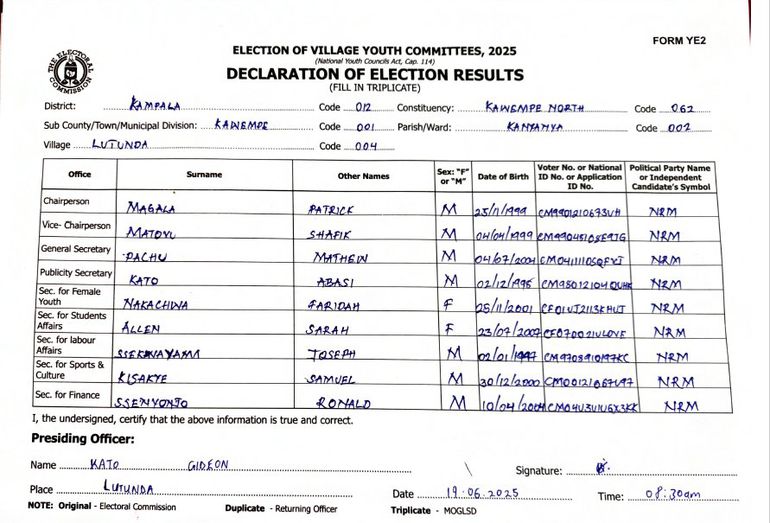 FORM YE2
THE ELECTORAL COMMISSION
ELECTION OF VILLAGE YOUTH COMMITTEES, 2025
(National Youth Councils Act, Cap. 114)
DECLARATION OF ELECTION RESULTS
(FILL IN TRIPLICATE)
District: KAMPALA Code 012 Constituency: KAWEMPE NORTH Code 062
Sub County/Town/Municipal Division: KAWEMPE Code 001 Parish/Ward: KANYANYA Code 002
Village LUTUNDA Code 004
Office Surname Other Names Sex: "F" or "M" Date of Birth Voter No. or National ID No. or Application ID No. Political Party Name or Independent Candidate's Symbol
Chairperson MAGALA PATRICK M 25/11/1999 NRM
Vice- Chairperson MATOVU SHAFIK M 04/04/1999 NRM
General Secretary PACHU M 04/07/2004 NRM
Publicity Secretary KATO ABASI M NRM
Sec. for Female Youth NAKACHWA FARIDAH F 25/11/2001 NRM
Sec. for Students Affairs ALLEN SARAH F NRM
Sec. for labour Affairs JOSEPH M 02/01/1997 NRM
Sec. for Sports & Culture KISAKYE SAMUEL M 30/12/2000 NRM
Sec. for Finance SSENYONJO RONALD M 10/04/2004 NRM
I, the undersigned, certify that the above information is true and correct.
Presiding Officer:
Name KATO GIDEON Signature:
Place LUTUNDA Date 19.06.2025 Time: 08:30am
NOTE: Original - Electoral Commission Duplicate - Returning Officer Triplicate - MOGLSD